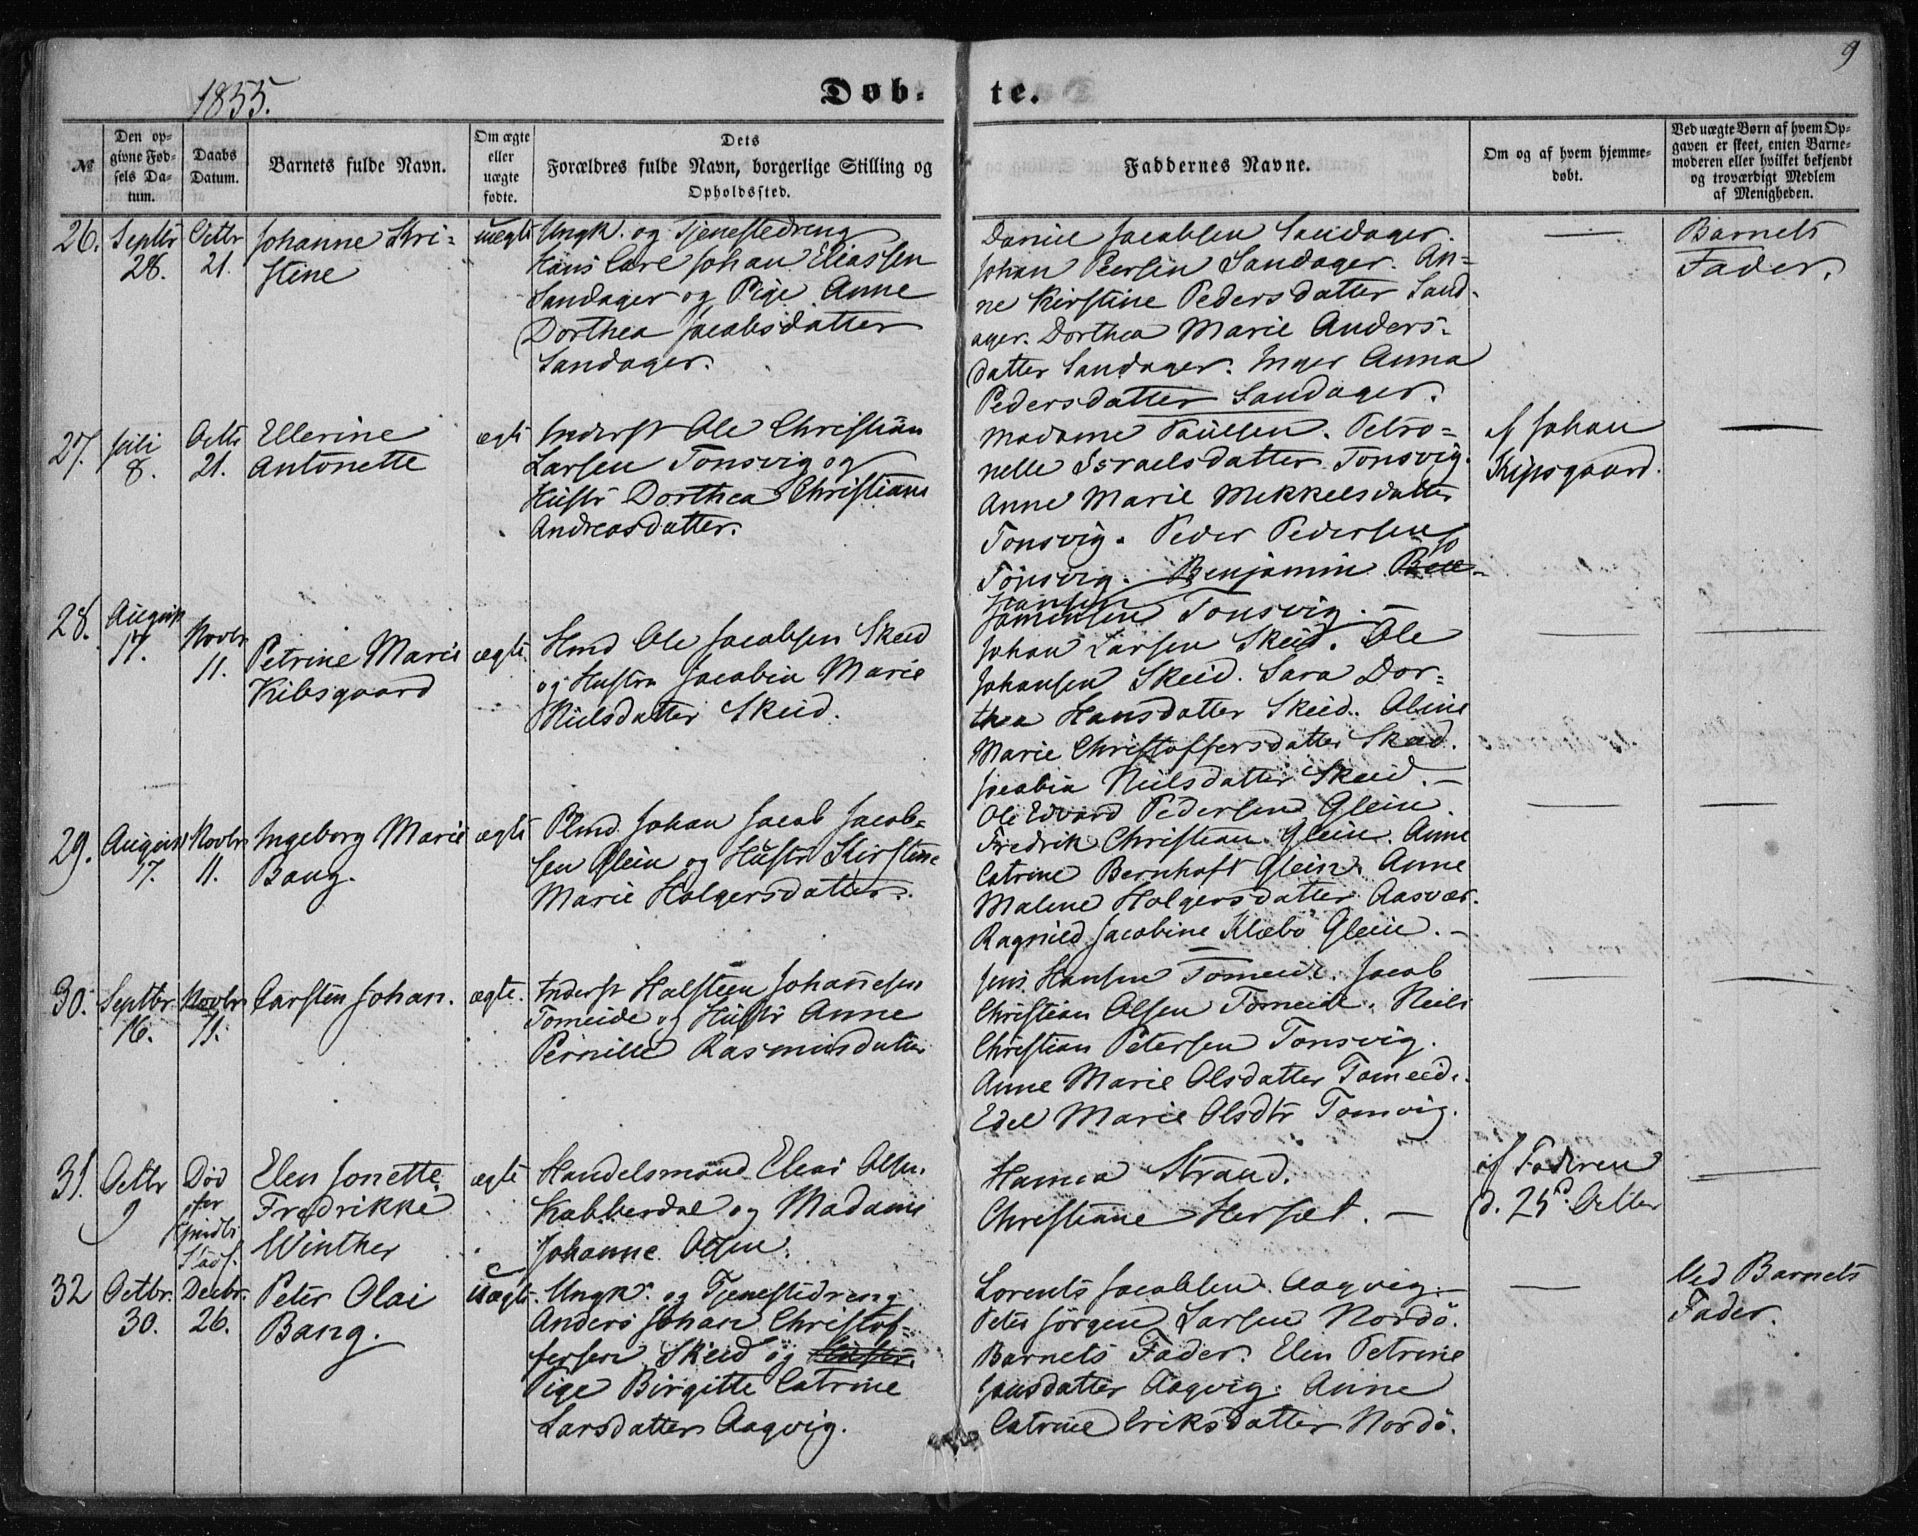 9
1855.
Døb- te.
№
Den opgivne Fødsels Datum.
Daabs Datum.
Barnets fulde Navn.
Om ægte eller uægte fødte.
Dets Forældres fulde Navn, borgerlige Stilling og Opholdssted.
Faddernes Navne.
Om og af hvem hjemmedøbt.
Ved uægte Børn af hvem Opgaven er skeet, enten Barnemoderen eller hvilket bekjendt og troværdigt Medlem af Menigheden.
26.
Septbr
28.
Octbr
21.
Johanne Kri-
stine
uægte
Ungk. og Tjenestedreng
Hans Carl Johan Eliassen
Sandager og Pige Anne
Dorthea Jacobsdatter
Sandager.
Daniel Jacobsen Sandager.
Johan Peersen Sandager. An-
ne Kirstine Pedersdatter Sand-
ager. Dorthea Marie Anders-
datter Sandager. Inger Anna
Pedersdatter Sandager.
Barnets
Fader.
27.
Juli
8.
Octbr
21.
Ellerine
Antonette
ægte
Inderst Ole Christian
Larsen Tonsvig og
Hustr Dorthea Christiana
Andreasdatter.
Madame Paulsen. Petro-
nelle Israelsdatter Tonsvig.
Anne Marie Mikkelsdatter
Tonsvig. Peder Pedersen
Tonsvig. Benjamin
Hansen
Tonsvig.
af Johan
Kipsgaard.
28.
August
17.
Novbr
11.
Petrine Marie
Kibsgaard
ægte.
Hmd Ole Jacobsen Skeid
og Hustru Jacobia Marie
Nielsdatter Skeid.
Johan Larsen Skeid. Ole
Johansen Skeid. Sara Dor-
thea Hansdatter Skeid. Oline
Marie Christoffersdatter Skeid.
Jacobia Nielsdatter Skeid.
29.
August
17.
Novbr
11.
Ingeborg Marie
Bang.
ægte
Plmd Johan Jacob Jacob-
sen Glein og Hustr Kirstine
Marie Holgersdatter.
Ole Edvard Pedersen Glein.
Fredrik Christian Glein. Anne
Catrine Bernhoft Glein. Anne
Malene Holgersdatter Aasvær.
Ragnild Jacobine Klæbo Glein.
30.
Septbr
16.
Novbr
11.
Carsten Johan.
ægte.
Inderst Halsteen Johannesen
Tomeide og Hustr Anne
Pernille Rasmusdatter
Jens Hansen Tomeide. Jacob
Christian Olsen Tomeide. Neils
Christian Petersen Tonsvig.
Anne Marie Olsdatter Tomeid.
Edel Marie Olsdtr Tonsvig.
31.
Octbr
9
Død
før
Stadf.
Elen Jonette
Fredrikke
Winther
ægte
Handelsmand Elias Olsen.
Kobberdal og Madame
Johanne Olsen.
Hanna Strand.
Christiane Hersæt.
af Faderen
d. 25d. Octber
32
Octbr.
30.
Decbr.
26.
Peter Olai
Bang.
Uægte.
Ungk. og Tjenestedreng
Anders Johan Christof-
fersen Skeid og Hustr.
Pige Birgitte Catrine
Larsdatter Aagvig.
Lorents Jacobsen Aagvig.
Peter Jörgen Larsen Nordö.
Barnets Fader. Elen Petrine
Jensdatter Aagvig. Anne
Catrine Eriksdatter Nordö.
Ved Barnets
Fader.